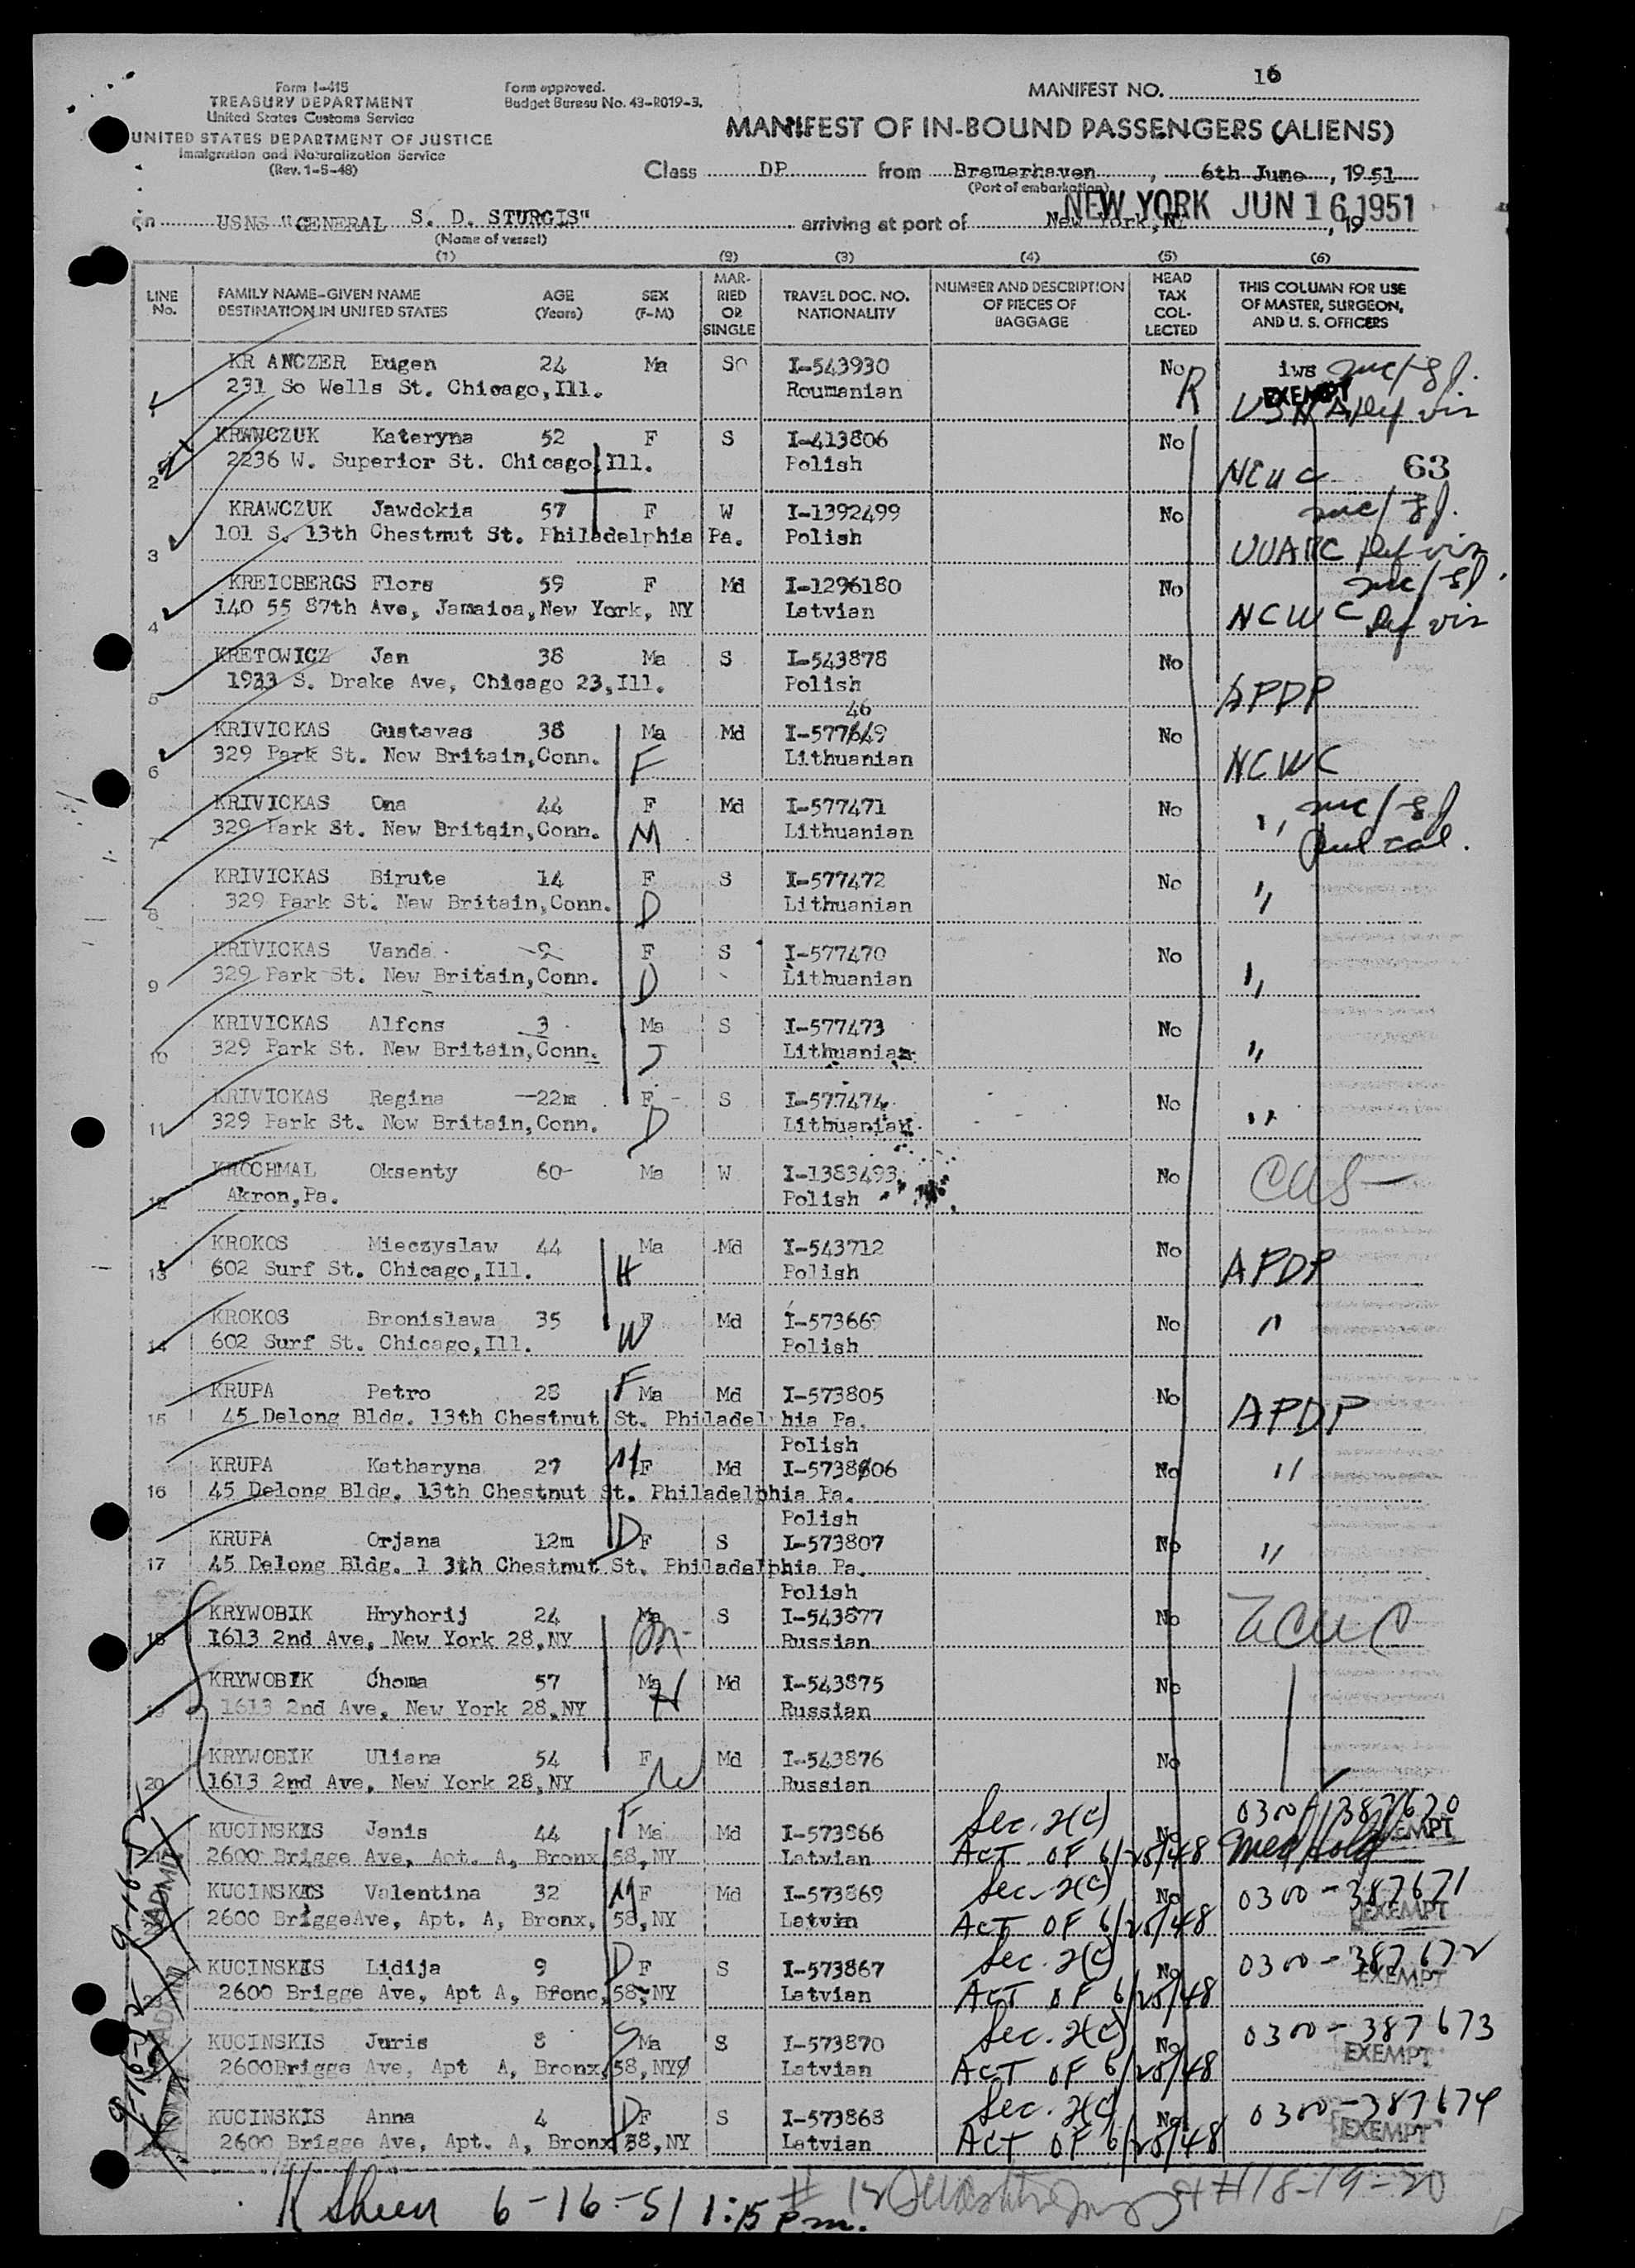 Form I-415
TREASURY DEPARTMENT
United States Customs Service
UNITED STATES DEPARTMENT OF JUSTICE
Immigration and Naturalization Service
(Rev. 1-5-48)
Form approved.
Budget Bureau No. 43-R019-3.
MANIFEST NO. 16
MANIFEST OF IN-BOUND PASSENGERS (ALIENS)
Class DP from Bremerhaven, 6th June, 1951
(Port of embarkation)
on USNS "GENERAL S. D. STURGIS" arriving at port of New York, N, 19
NEW YORK JUN 16 1951
(Name of vessel)
(1) (2) (3) (4) (5) (6)
LINE No.
FAMILY NAME—GIVEN NAME AGE SEX
DESTINATION IN UNITED STATES (Years) (F-M)
MARRIED OR SINGLE
TRAVEL DOC. NO. NATIONALITY
NUMBER AND DESCRIPTION OF PIECES OF BAGGAGE
HEAD TAX COLLECTED
THIS COLUMN FOR USE OF MASTER, SURGEON, AND U. S. OFFICERS
KR ANCZER Eugen 24 Ma S I-543930 No R iws
231 So Wells St. Chicago, Ill. Roumanian EXEMPT
KRAWCZUK Kateryna 52 F S I-413806 No
2 2236 W. Superior St. Chicago, Ill. Polish 63
KRAWCZUK Jawdokia 57 F W I-1392499 No
3 101 S. 13th Chestnut St. Philadelphia Pa. Polish
KREICBERGS Flors 59 F Md I-1296180 No
4 140 55 87th Ave, Jamaica, New York, NY Latvian NCWC
KRETOWICZ Jan 38 Ma S I-543878 No
5 1933 S. Drake Ave, Chicago 23, Ill. Polish APDP
46
KRIVICKAS Gustavas 38 Ma Md I-577649 No
6 329 Park St. New Britain, Conn. F Lithuanian NCWC
KRIVICKAS Ona 44 F Md I-577471 No "
7 329 Park St. New Britain, Conn. M Lithuanian
KRIVICKAS Birute 14 F S I-577472 No "
8 329 Park St. New Britain, Conn. D Lithuanian
KRIVICKAS Vanda 9 F S I-577470 No "
9 329 Park St. New Britain, Conn. D Lithuanian
KRIVICKAS Alfons 3 Ma S I-577473 No "
10 329 Park St. New Britain, Conn. Lithuanian
KRIVICKAS Regina 22m F S I-577474 No "
11 329 Park St. New Britain, Conn. D Lithuanian
KROCHMAL Oksenty 60 Ma W I-1383493 No
12 Akron, Pa. Polish
KROKOS Mieczyslaw 44 Ma Md I-543712 No
13 602 Surf St. Chicago, Ill. H Polish APDP
KROKOS Bronislawa 35 F Md I-573669 No "
14 602 Surf St. Chicago, Ill. W Polish
KRUPA Petro 28 F Ma Md I-573805 No APDP
15 45 Delong Bldg. 13th Chestnut St. Philadelphia Pa.
Polish
KRUPA Katharyna 27 M F Md I-573806 No "
16 45 Delong Bldg. 13th Chestnut St. Philadelphia Pa.
Polish
KRUPA Orjana 12m D F S I-573807 No "
17 45 Delong Bldg. 1 3th Chestnut St. Philadelphia Pa.
Polish
KRYWOBIK Hryhorij 24 Ma S I-543877 No
18 1613 2nd Ave, New York 28, NY Russian
KRYWOBIK Choma 57 Ma Md I-543875 No
19 1613 2nd Ave, New York 28, NY H Russian
KRYWOBIK Uliana 54 F Md I-543876 No
20 1613 2nd Ave, New York 28, NY W Russian
KUCINSKIS Janis 44 F Ma Md I-573866 Sec. 2(c) No 0300-387670 EXEMPT
2600 Brigge Ave, Act. A, Bronx 58, NY Latvian ACT OF 6/25/48 Med Hold
KUCINSKIS Valentina 32 M F Md I-573869 Sec. 2(c) No 0300-387671
2600 BriggeAve, Apt. A, Bronx, 58, NY Latvin ACT OF 6/25/48 EXEMPT
KUCINSKIS Lidija 9 D F S I-573867 Sec. 2(c) No 0300-387672
2600 Brigge Ave, Apt A, Bronc, 58, NY Latvian ACT OF 6/25/48 EXEMPT
KUCINSKIS Juris 8 S Ma S I-573870 Sec. 2(c) No 0300-387673
2600Brigge Ave, Apt A, Bronx, 58, NY Latvian ACT OF 6/25/48 EXEMPT
KUCINSKIS Anna 4 D F S I-573868 Sec. 2(c) No 0300-387674
2600 Brigge Ave, Apt. A, Bronx 58, NY Latvian ACT OF 6/25/48 EXEMPT
6-16-51 1:15 pm. # 18-19-20